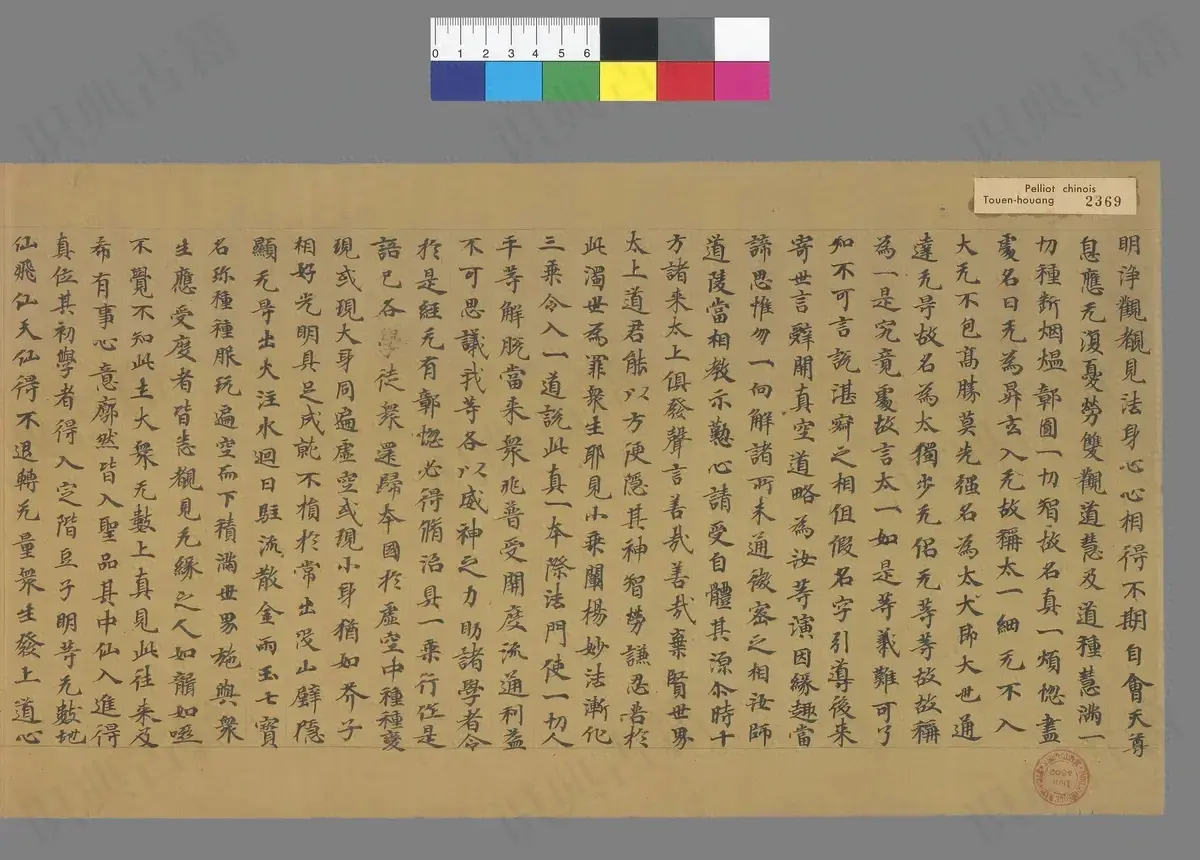 Pelliot chinois
Touen-houang 2369
0 1 2 3 4 5 6
明淨觀覩見法身心心相得不期自會天尊
息應无復憂勞雙觀道慧及道種慧滿一
切種斷烟熅鄣圓一切智故名真一煩惚盡
處名曰无為昇玄入无故稱太一細无不入
大无不包髙勝莫先强名為太犬即大也通
達无㝵故名為太獨步无侶无等等故故稱
為一是究竟處故言太一如是等義難可了
知不可言說湛寂之相但假名字引導後来
寄世言辭開真空道略為汝等演因緣趣當
諦思惟勿一向解諸所未通微密之相汝師
道陵當相教示懃心請受自體其源尒時十
方諸来太上俱發聲言善哉善哉棄賢世界
太上道君能以方便隱其神智勞謙忍苦於
此濁世為罪衆生耶見小乗闡楊妙法漸化
三乗令入一道說此真一本際法門使一切人
平等解脫當来衆兆普受開度流通利益
不可思議我等各以威神之力助諸學者令
於是經无有鄣惚必得脩治具一乗行作是
語已各學徒衆還歸本國於虛空中種種變
現或現大身同遍虛空或現小身猶如芥子
相好光明具足成就不損於常出没山壁隱
顯无㝵出火注水迴日駐流散金雨玉七寳
名珎種種服玩遍空而下積滿世界施與衆
生應受度者皆悉觀見无緣之人如聾如啞
不覺不知此土大衆无數上真見此往来及
希有事心意廓然皆入聖品其中仙入進得
真位其初學者得入定階豆子明等无數地
仙飛仙天仙得不退轉无量衆生發上道心